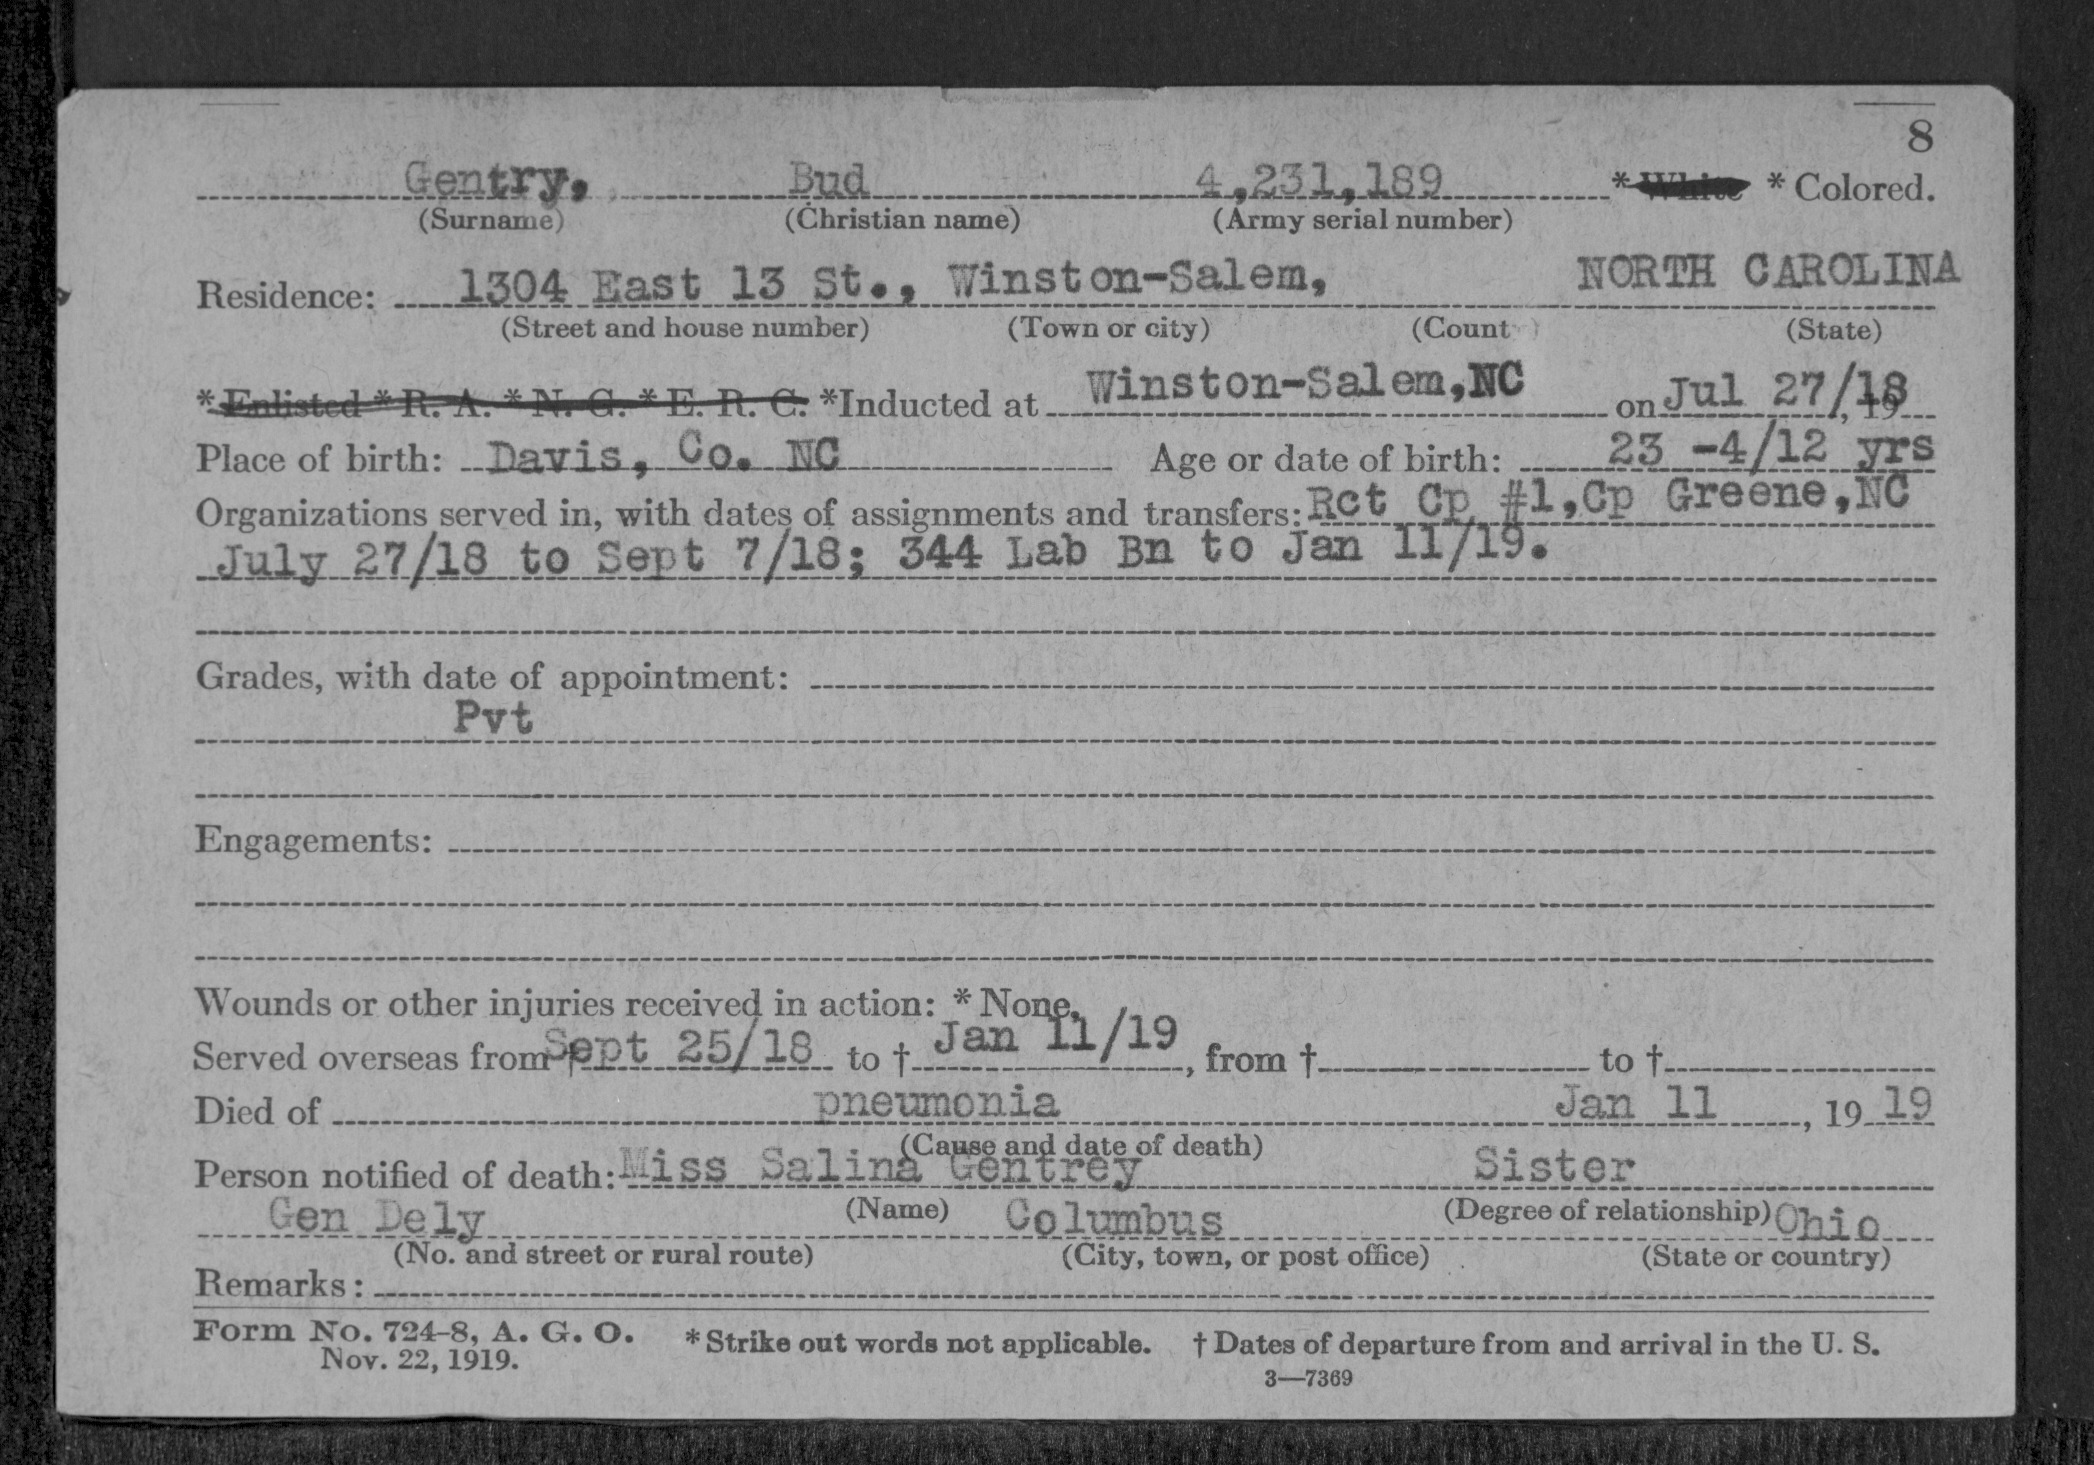 8
Gentry, Bud 4,231,189 * White * Colored.
(Surname) (Christian name) (Army serial number)
Residence: 1304 East 13 St., Winston-Salem, NORTH CAROLINA
(Street and house number) (Town or city) (Count ) (State)
* Enlisted * R. A. * N. G. * E. R. C. *Inducted at Winston-Salem,NC on Jul 27/18, 19
Place of birth: Davis, Co. NC Age or date of birth: 23 -4/12 yrs
Organizations served in, with dates of assignments and transfers: Rct Cp #1,Cp Greene,NC
July 27/18 to Sept 7/18; 344 Lab Bn to Jan 11/19.
Grades, with date of appointment:
Pvt
Engagements:
Wounds or other injuries received in action: * None.
Served overseas from † Sept 25/18 to † Jan 11/19, from † to †
Died of pneumonia Jan 11, 19 19
(Cause and date of death)
Person notified of death: Miss Salina Gentrey Sister
(Name) (Degree of relationship)
Gen Dely Columbus Ohio
(No. and street or rural route) (City, town, or post office) (State or country)
Remarks:
Form No. 724-8, A. G. O. * Strike out words not applicable. † Dates of departure from and arrival in the U. S.
Nov. 22, 1919.
3—7369